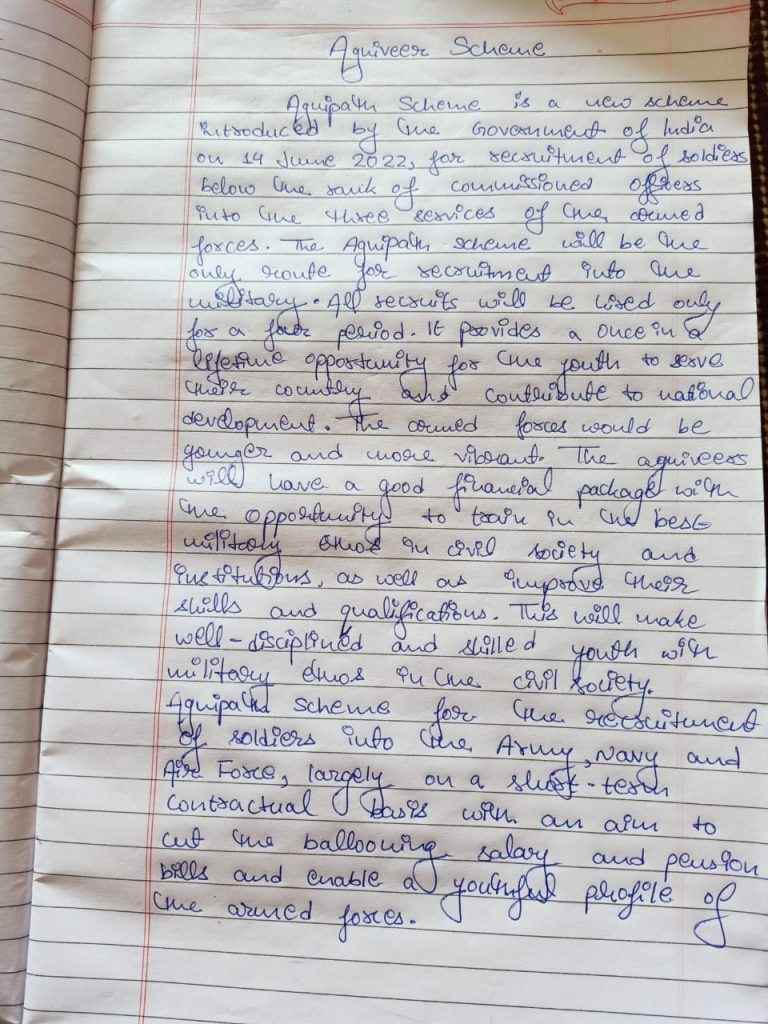 Agniveer Scheme
Agnipath Scheme is a new scheme
introduced by the Government of India
on 14 June 2022, for recruitment of soldiers
below the rank of commissioned officers
into the three services of the armed
forces. The Agnipath scheme will be the
only route for recruitment into the
military. All recruits will be hired only
for a four period. It provides a once in a
lifetime opportunity for the youth to serve
their country and contribute to national
development. The armed forces would be
younger and more vibrant. The agniveers
will have a good financial package with
the opportunity to train in the best
military ethos in civil society and
institutions, as well as improve their
skills and qualifications. This will make
well-disciplined and skilled youth with
military ethos in the civil society.
Agnipath scheme for the recruitment
of soldiers into the Army, Navy and
Air Force, largely on a short-term
contractual basis with an aim to
cut the ballooning salary and pension
bills and enable a youthful profile of
the armed forces.